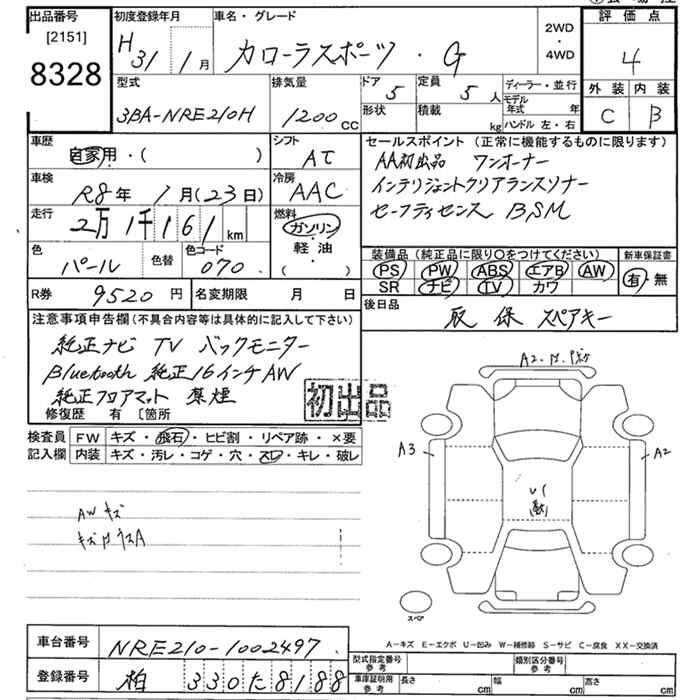 出品番号 初度登録年月 車名・グレード 2WD・4WD 評価点
[2151]
8328
H31 1月 カローラスポーツ・G 4
型式 排気量 ドア 5 定員 5人 ディーラー・並行 外装 内装
3BA-NRE210H 1200cc 形状 積載 kg モデル年式 年 C B
ハンドル 左・右
車歴 シフト セールスポイント(正常に機能するものに限ります)
自家用・( ) AT AA初出品 ワンオーナー
車検 冷房 インテリジェントクリアランスソナー
R8年1月(23日) AAC セーフティセンス BSM
走行 燃料
2万1千161km ガソリン・軽油( ・ )
色 色替 色コード 装備品(純正品に限り○をつけてください) 新車保証書
パール 070 PS PW ABS エアB AW 有・無
SR ナビ TV カワ
R券 9520円 名変期限 月 日 後日品
取 保 スペアキー
注意事項申告欄(不具合内容等は具体的に記入して下さい)
純正ナビ TV バックモニター
Bluetooth 純正16インチAW
純正フロアマット 禁煙
修復歴 有 〔箇所
初出品
検査員 FW キズ・飛石・ヒビ割・リペア跡・×要
記入欄 内装 キズ・汚レ・コゲ・穴・スレ・キレ・破レ
A2
A3
A2
AWキズ
スペア
A-キズ E-エクボ U-凹み W-補修跡 S-サビ C-腐食 XX-交換済
車台番号 NRE210-1002497
型式指定番号 参考 類別区分番号 参考
登録番号 柏 330 た 8188
車庫証明用 参考 長さ cm 幅 cm 高さ cm